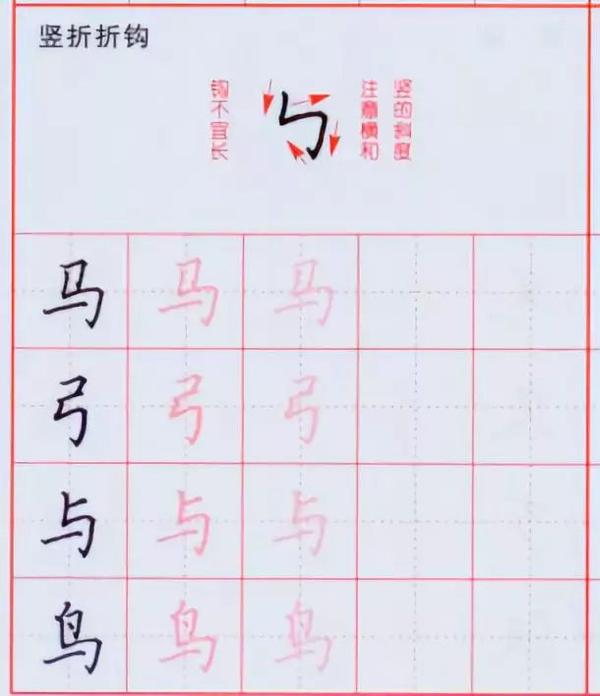 竖折折钩
钩不宜长
注意横和
竖的斜度
㇉
马 马 马
弓 弓 弓
与 与 与
鸟 鸟 鸟